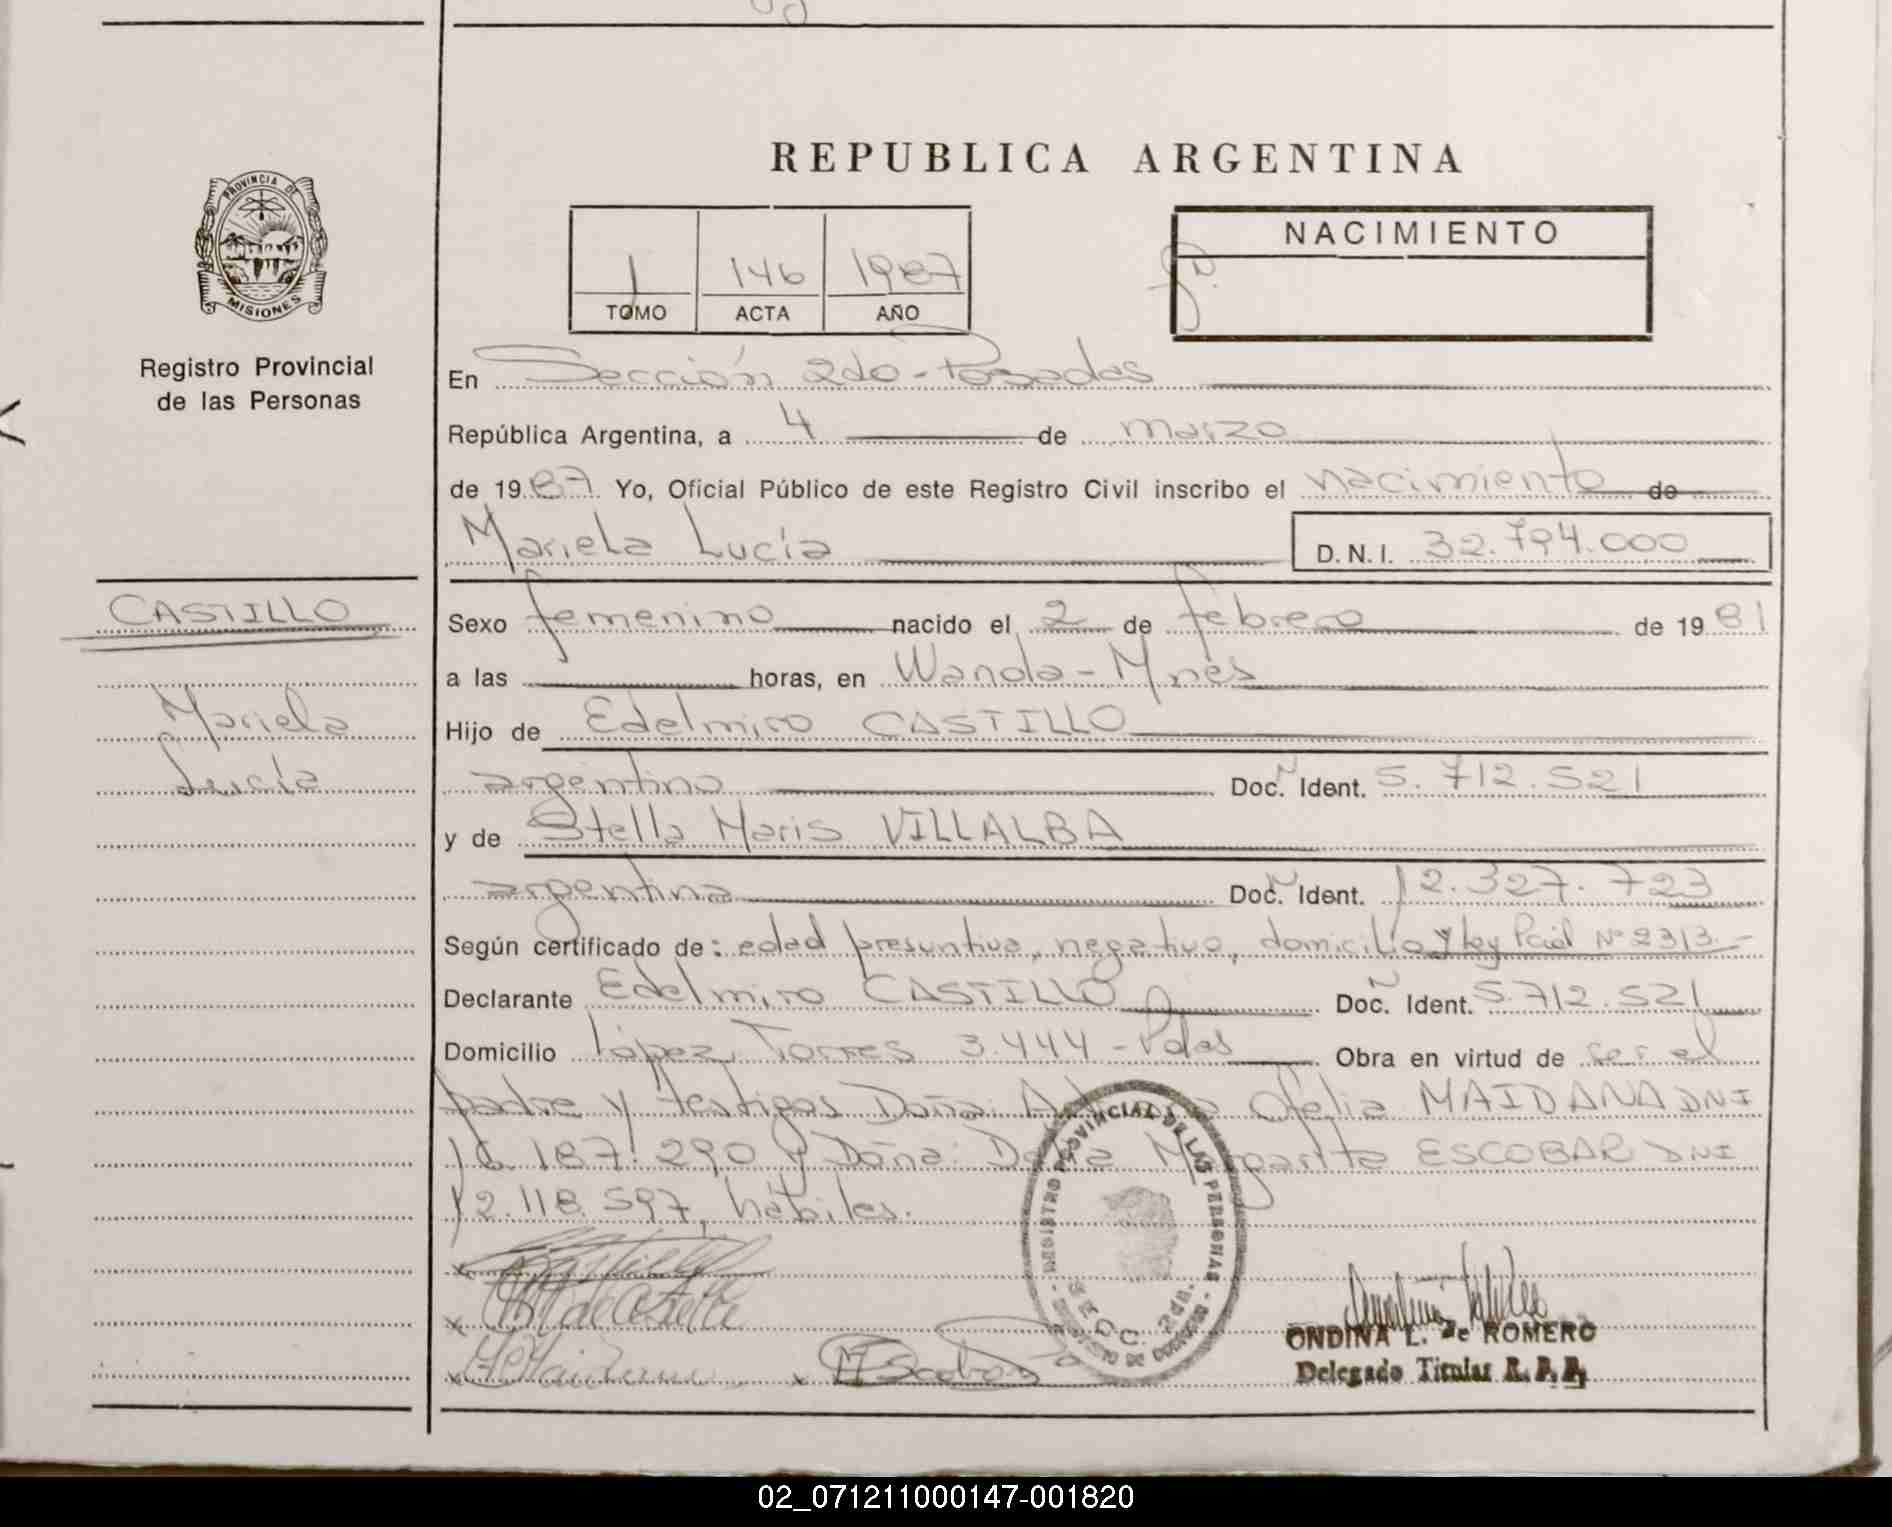 REPUBLICA ARGENTINA
PROVINCIA DE
MISIONES
Registro Provincial
de las Personas
1 146 1987
TOMO ACTA AÑO
NACIMIENTO
En Sección 2do - Posadas
República Argentina, a 4 de marzo
de 1987. Yo, Oficial Público de este Registro Civil inscribo el nacimiento de
Mariela Lucía D.N.I. 32.794.000
CASTILLO
Mariela
Lucía
Sexo femenino nacido el 2 de febrero de 1981
a las horas, en Wanda - Mnes
Hijo de Edelmiro CASTILLO
argentino Doc. Ident. 5.712.521
y de Stella Maris VILLALBA
argentina Doc. Ident. 12.327.723
Según certificado de: edad presuntiva, negativo, domicilio y ley Pcial Nº 2313.-
Declarante Edelmiro CASTILLO Doc. Ident. 5.712.521
Domicilio López Torres 3.444 - Pdas Obra en virtud de ser el
padre y testigos Doña: Ofelia MAIDANA DNI
16.187.290 y Doña: Margarita ESCOBAR DNI
12.118.597, hábiles.
REGISTRO PROVINCIAL DE LAS PERSONAS
SECC. 2da.
ONDINA L. de ROMERO
Delegado Titular R. P. P.
02_071211000147-001820